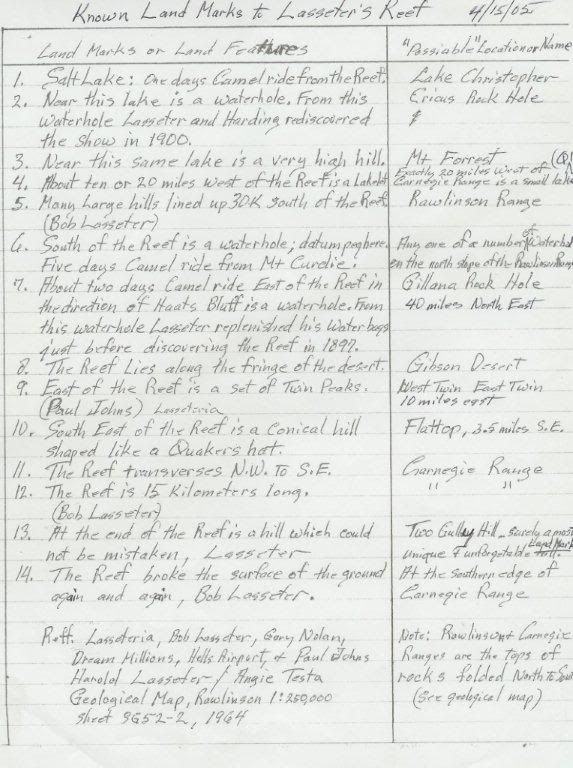 Known Land Marks to Lasseter's Reef 4/15/05
Land Marks or Land Features
"Possiable" Location or Name
1. Salt Lake: One days Camel ride from the Reef.
Lake Christopher
2. Near this lake is a waterhole. From this
Ericus Rock Hole
waterhole Lasseter and Harding rediscovered
the show in 1900.
3. Near this same lake is a very high hill.
Mt Forrest
4. About ten or 20 miles west of the Reef is a Lakelet
Exactly 20 miles west of
Carnegie Range is a small lake
5. Many Large hills lined up 30K south of the Reef
Rawlinson Range
(Bob Lasseter)
6. South of the Reef is a waterhole; datum peg here.
Any one of a number of Waterhol
Five days Camel ride from Mt Curdie.
on the north slope of the Rawlinson Rang
7. About two days Camel ride East of the Reef in
Gillana Rock Hole
the direction of Haats Bluff is a waterhole. From
40 miles North East
this waterhole Lasseter replenished his water bags
just before discovering the Reef in 1897.
8. The Reef Lies along the fringe of the desert.
Gibson Desert
9. East of the Reef is a set of Twin Peaks.
West Twin East Twin
(Paul Johns) Lasseteria
10 miles east
10. South East of the Reef is a Conical hill
Flattop, 3.5 miles S.E.
shaped like a Quakers hat.
11. The Reef transverses N.W. To S.E.
Carnegie Range
12. The Reef is 15 Kilometers long.
" "
(Bob Lasseter)
13. At the end of the Reef is a hill which could
Two Gulley Hill, surely a most
not be mistaken, Lasseter
unique & unforgetable Land Mark
14. The Reef broke the surface of the ground
At the Southern edge of
again and again, Bob Lasseter.
Carnegie Range
Reff. Lasseteria, Bob Lasseter, Gary Nolan,
Dream Millions, Hells Airport, & Paul Johns
Harold Lasseter / Angie Testa
Geological Map, Rawlinson 1:250,000
sheet SG52-2, 1964
Note: Rawlinson & Carnegie
Ranges are the Tops of
rocks folded North to Sou
(see geological map)